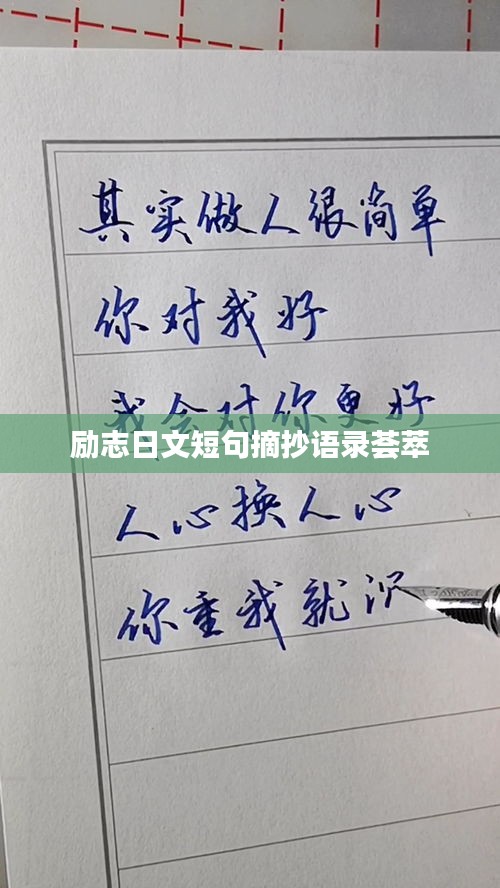 其实做人很简单
你对我好
我会对你更好
励志日文短句摘抄语录荟萃
人心换人心
你重我就沉